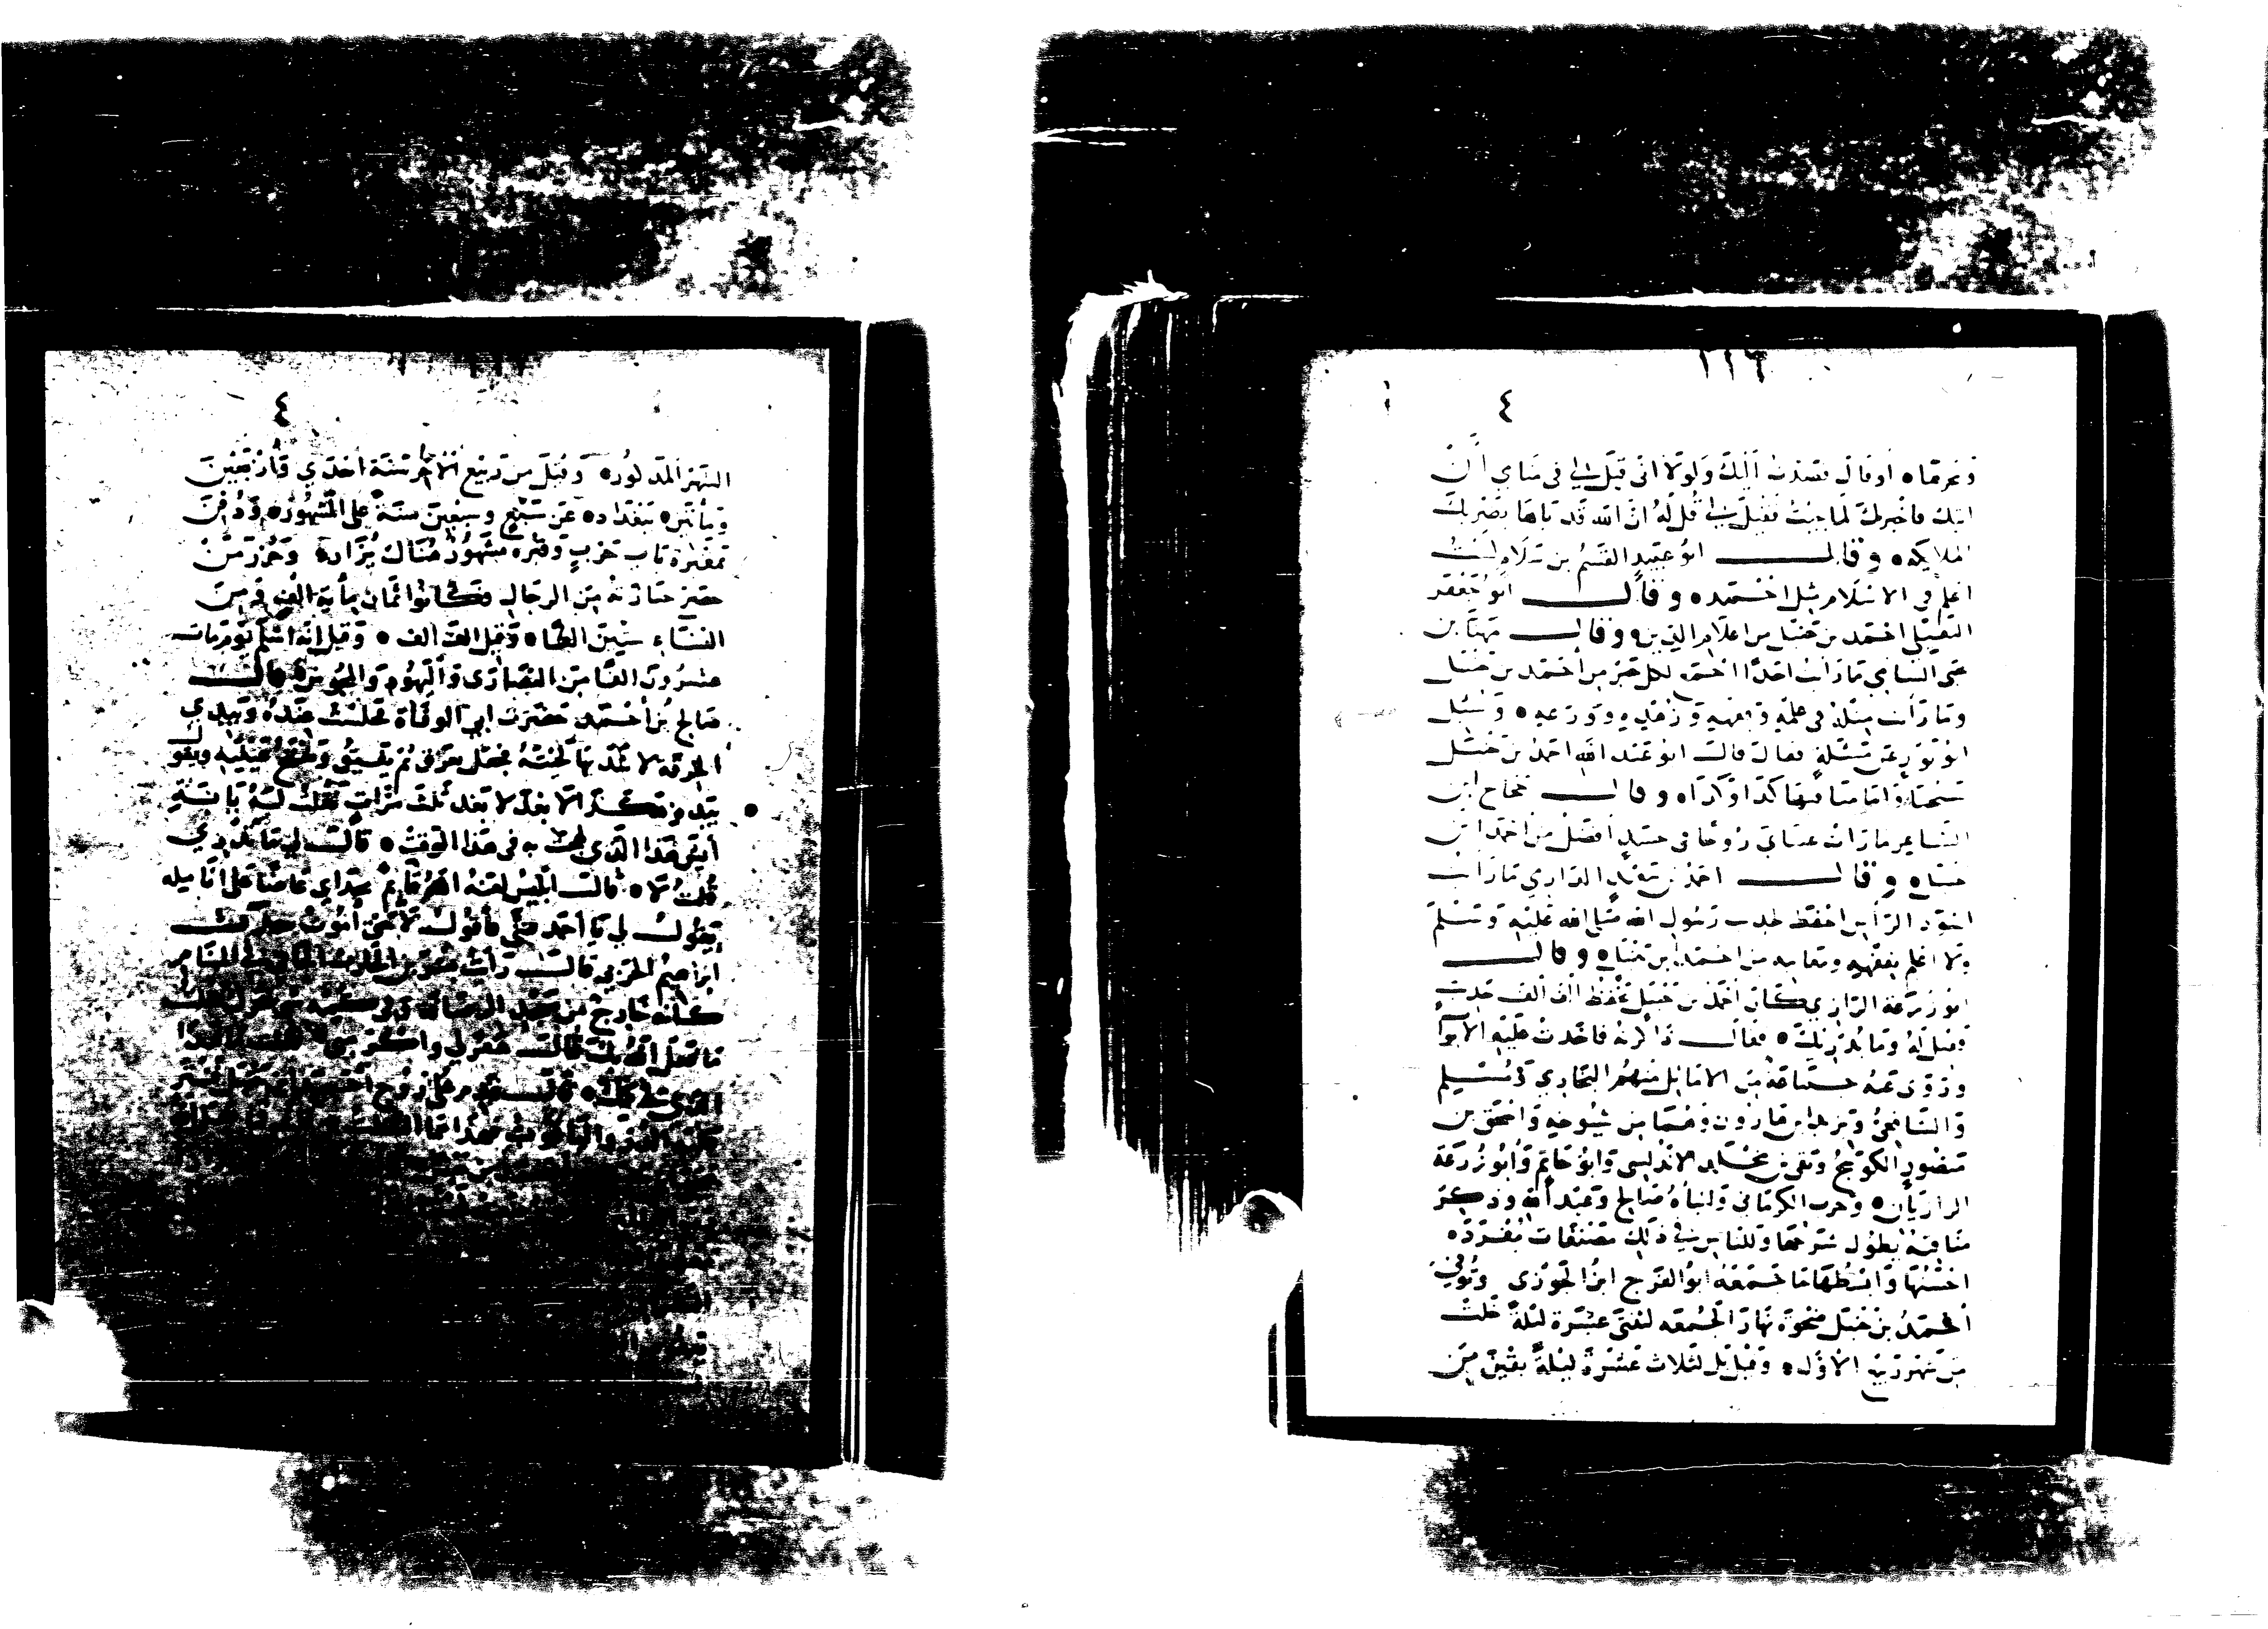 ١١٦
٤
وبحرها ه او قال قصدت اليك ولولا انى قيل لي في منامي ان
اتيك فاخبرك لما جيت فقيل لي قل له ان الله قد باها بضربك
الملايكه ه وقال ابو عبيد القسم بن سلام لست
اعلم في الاسلام مثل احمد ه وقال ابو جعفر
النفيلي احمد بن حنبل من اعلام الدين ه وقال مهنا بن
يحي الشامي ما رأيت احدًا اجمع لكل خير من احمد بن حنبل
وما رأيت مثله في علمه وفقهه وزهده وورعه ه وسئل
ابو ثور عن مسئلةٍ فقال قال ابو عبد الله احمد بن حنبل
شيخنا وامامنا فيها كذا وكذا ه وقال حجاج ابن
الشاعر ما رأت عيناي روحًا في جسدٍ افضل من احمد ابن
حنبل ه وقال احمد بن سعيد الدارمي ما رأيت
اسود الرأس احفظ لحديث رسول الله صلى الله عليه وسلم
ولا اعلم بفقهه ومعانيه من احمد ابن حنبل ه وقال
ابو زرعة الرازي كان احمد بن حنبل يحفظ الف الف حديثٍ
فقيل له وما يدريك ه فقال ذاكرته فاخذت عليه الابواب
وروى عنه جماعة من الاماثل منهم البخاري ومسلم
والشافعي ويزيد ابن هارون وهما من شيوخه واسحق بن
منصور الكوسج وبقي بن مخلد الاندلسي وابو حاتم وابو زرعة
الرازيان ه وحرب الكرماني ولبناهُ صالح وعبد الله وذكر
مناقبه يطول شرحها وللناس في ذلك مصنفات مفردة ه
احسنها وابسطها ما جمعه ابو الفرج ابن الجوزي وتوفي
احمد بن حنبل ضحوة نهار الجمعه لثنتي عشرة ليلةً خلت
من شهر ربيع الاول ه وقيل بل لثلاث عشرة ليلةً بقين من
٤
الشهر المذكور ه وقيل من ربيع الاخر سنة احدي واربعين
ومأتين ه ببغداد ه عن سبعٍ وسبعين سنةً على المشهور ه ودفن
بمقبرة باب حربٍ وقبره مشهور هناك يزار ه وحزر من
حضر جنازته من الرجال فكانوا ثمان مأية الفٍ ومن
النساء ستين الفًا ه وقيل الف الف ه وقيل انه اسلم يوم مات
عشرون الفًا من النصارى واليهود والمجوس ه قال
صالح بن احمد حضرت ابي الوفاة فجلست عنده وبيدي
الخرقة لا شد بها لحيته فجعل يعرق ثم يفيق ويفتح عينيه ويقول
بيده هكذا لا بعد لا بعد ثلث مراتٍ فقلت له يا ابتِ
أيش هذا الذي لهجت به في هذا الوقت ه قال لي ما تدري
قلت لا ه قال ابليس لعنه الله قايم بحذاي عاضًا على انامله
يقول لي يا أحمد فتني فأقول لا حتى أموت
ابراهيم الحربي قال رأيت بشر بن الحارث الحافي في المنام
كأنه خارج من مسجد الرصافة وفي كمه شي يتحرك فقلت
ما فعل الله بك قال غفر لي واكرمني فقلت ما هذا
الذي في كمك ه قال قدم علي روح احمد ابن حنبل فنثر
عليه الدر والياقوت فهذا مما التقطت